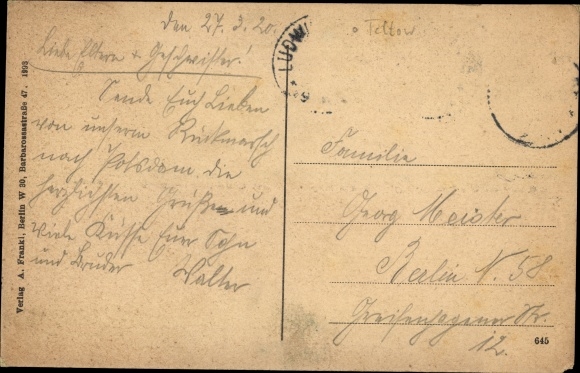 den 27.3.20.
Liebe Eltern + Geschwister!
Sende Euch Lieben
von unserm Rückmarsch
nach Potsdam die
herzlichsten Grüße und
viele Küsse Euer Sohn
und Bruder Walter
Verlag A. Frankl, Berlin W 30, Barbarossastraße 47. 1898
LUDWI
Teltow
Familie
Georg Meister
Berlin N. 58
Greifenhagener Str.
12.
645